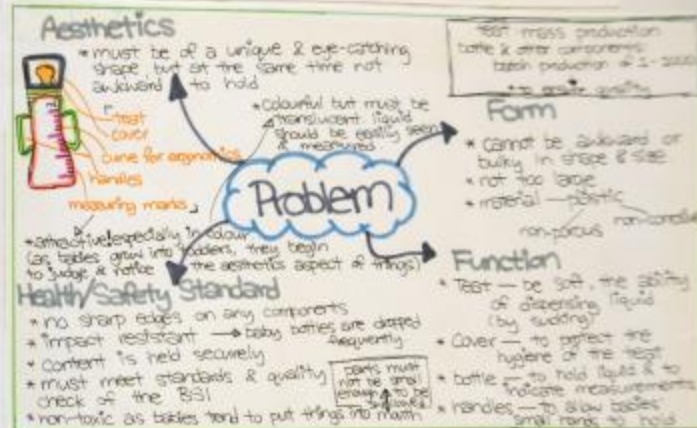 Aesthetics
* must be of a unique & eye-catching
shape, but at the same time not
awkward to hold
* Colourful but must be
translucent liquid
should be easily seen
& measured
teat
cover
curve for ergonomics
handles
measuring marks
* attractive! especially in colour
(as babies grow into toddlers, they begin
to judge & notice the aesthetics aspect of things)
Problem
teat mass production
bottle & other components:
batch production of
Form
* cannot be awkward or
bulky in shape & size
* not too large
* material — plastic
non-porous
Function
* Teat — be soft, the ability
of dispensing liquid
(by sucking)
* Cover — to protect the
hygiene of the teat
* bottle — to hold liquid & to
indicate measurements
* handles — to allow babies'
small hands to hold
Health/Safety Standard
* no sharp edges on any components
* impact resistant → baby bottles are dropped
frequently
* content is held securely
* must meet standards & quality
check of the
* non-toxic as babies tend to put things into mouth
parts must
not be small
enough to be
swallowed